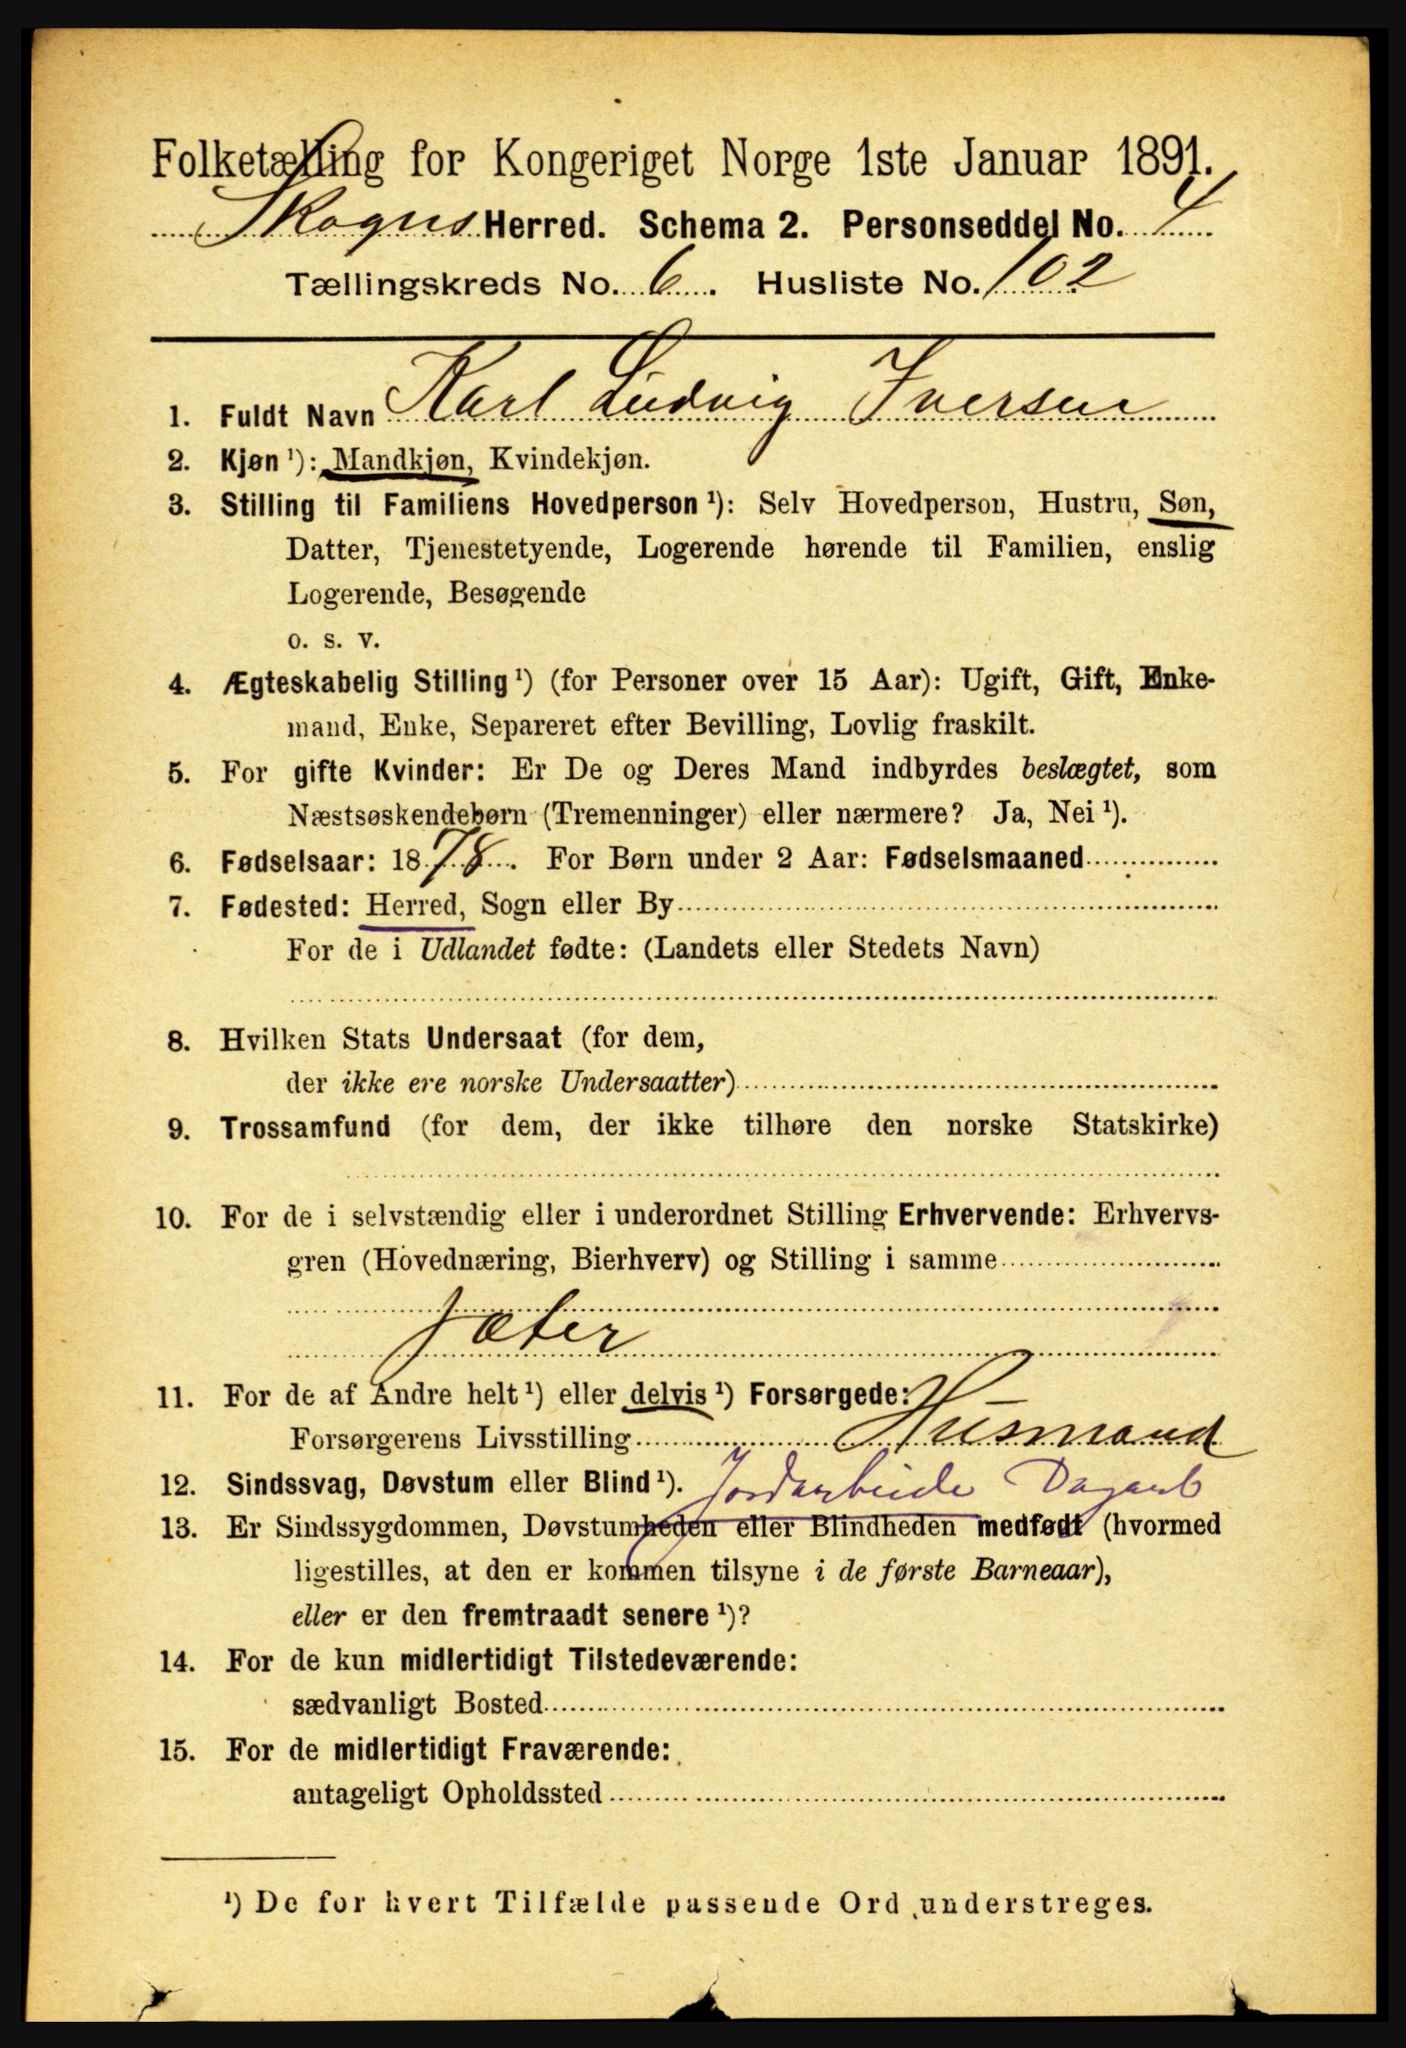 Folketælling for Kongeriget Norge 1ste Januar 1891.
Skogns Herred. Schema 2. Personseddel No. 4
Tællingskreds No. 6. Husliste No. 102
1. Fuldt Navn Karl Ludvig Iversen
2. Kjøn ¹): Mandkjøn, Kvindekjøn.
3. Stilling til Familiens Hovedperson ¹): Selv Hovedperson, Hustru, Søn,
Datter, Tjenestetyende, Logerende hørende til Familien, enslig
Logerende, Besøgende
o. s. v.
4. Ægteskabelig Stilling ¹) (for Personer over 15 Aar): Ugift, Gift, Enke-
mand, Enke, Separeret efter Bevilling, Lovlig fraskilt.
5. For gifte Kvinder: Er De og Deres Mand indbyrdes beslægtet, som
Næstsøskendebørn (Tremenninger) eller nærmere? Ja, Nei ¹).
6. Fødselsaar: 1878. For Børn under 2 Aar: Fødselsmaaned
7. Fødested: Herred, Sogn eller By
For de i Udlandet fødte: (Landets eller Stedets Navn)
8. Hvilken Stats Undersaat (for dem,
der ikke ere norske Undersaatter)
9. Trossamfund (for dem, der ikke tilhøre den norske Statskirke)
10. For de i selvstændig eller i underordnet Stilling Erhvervende: Erhvervs-
gren (Hovednæring, Bierhverv) og Stilling i samme
Jæter
11. For de af Andre helt ¹) eller delvis ¹) Forsørgede:
Forsørgerens Livsstilling Husmand
12. Sindssvag, Døvstum eller Blind ¹). Jordarbeide Dagarb
13. Er Sindssygdommen, Døvstumheden eller Blindheden medfødt (hvormed
ligestilles, at den er kommen tilsyne i de første Barneaar),
eller er den fremtraadt senere ¹)?
14. For de kun midlertidigt Tilstedeværende:
sædvanligt Bosted
15. For de midlertidigt Fraværende:
antageligt Opholdssted
¹) De for hvert Tilfælde passende Ord understreges.